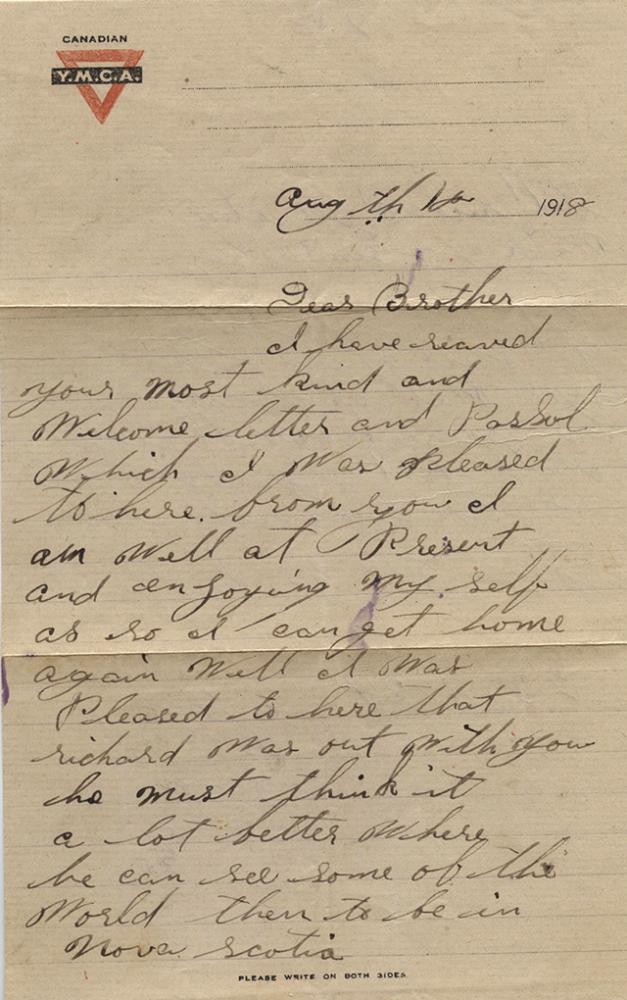 CANADIAN
Y.M.C.A.
Aug th 1918
Dear Brother
I have reaved
your most kind and
Welcome letter and Passol
Which I Was pleased
to here from you I
am Well at Present
and enjoying my self
as so I can get home
again Well I Was
Pleased to here that
richard Was out With you
he must think it
a lot better Where
he can see some of the
World then to be in
Nova scotia
PLEASE WRITE ON BOTH SIDES